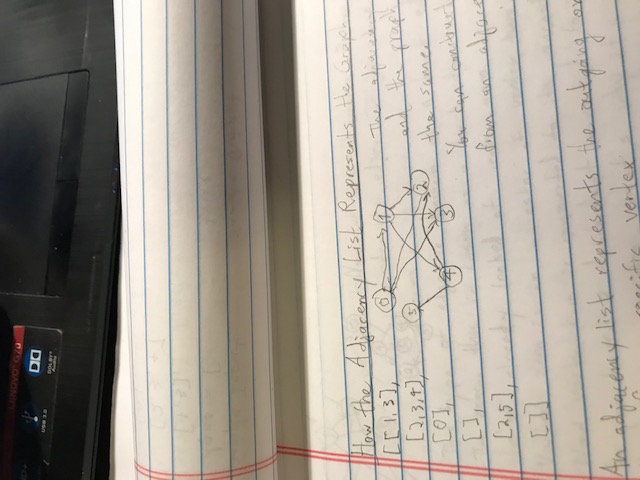 LENOVO G70
USB 3.0
DOLBY
Audio
How the Adjacency List Represents the Graph
[[1,3],
[2,3,4],
[0],
[],
[2,5],
[]]
0
1
5
2
4
3
The adjacency
and the graph
the same.
You can construct
from an adjace
An adjacency list represents the outgoing
specific vertex